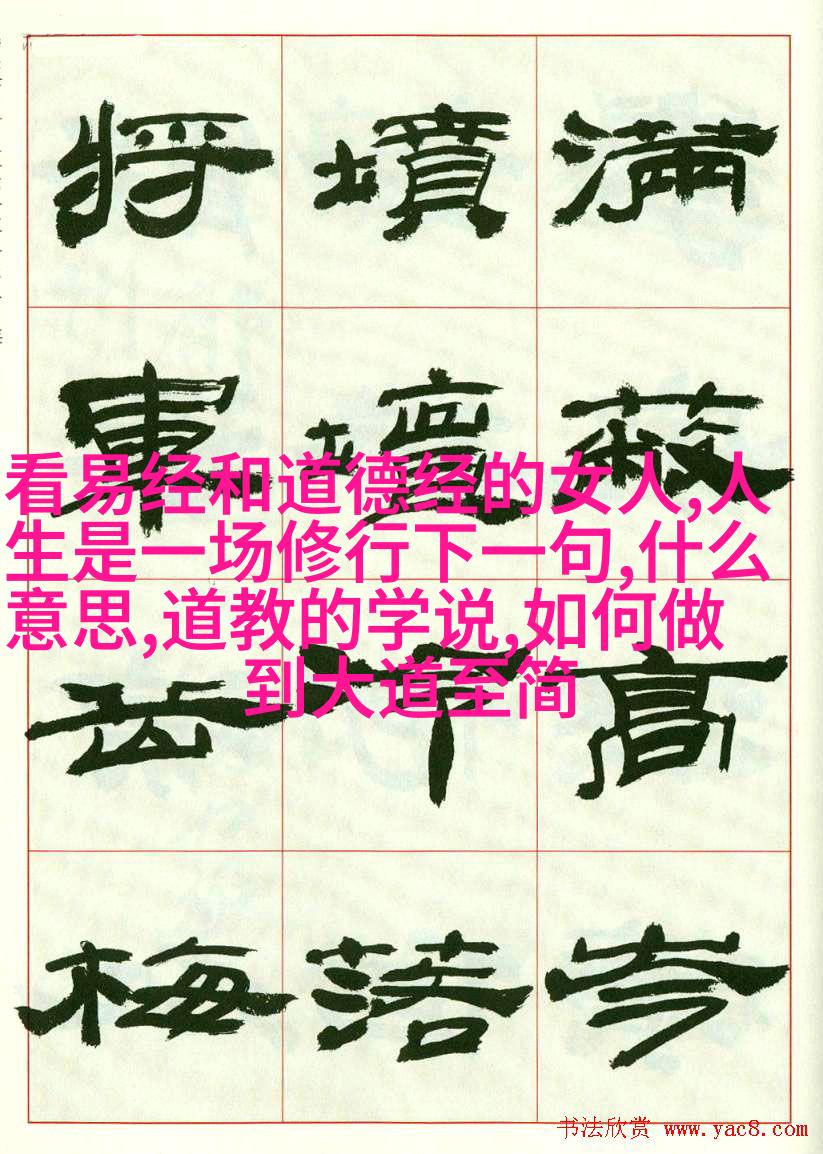 看易经和道德经的女人,人
生是一场修行下一句,什么
意思,道教的学说,如何做
到大道至简
滿蔽高岑
墳壇落
將軍岳梅
书法欣赏 www.yac8.com